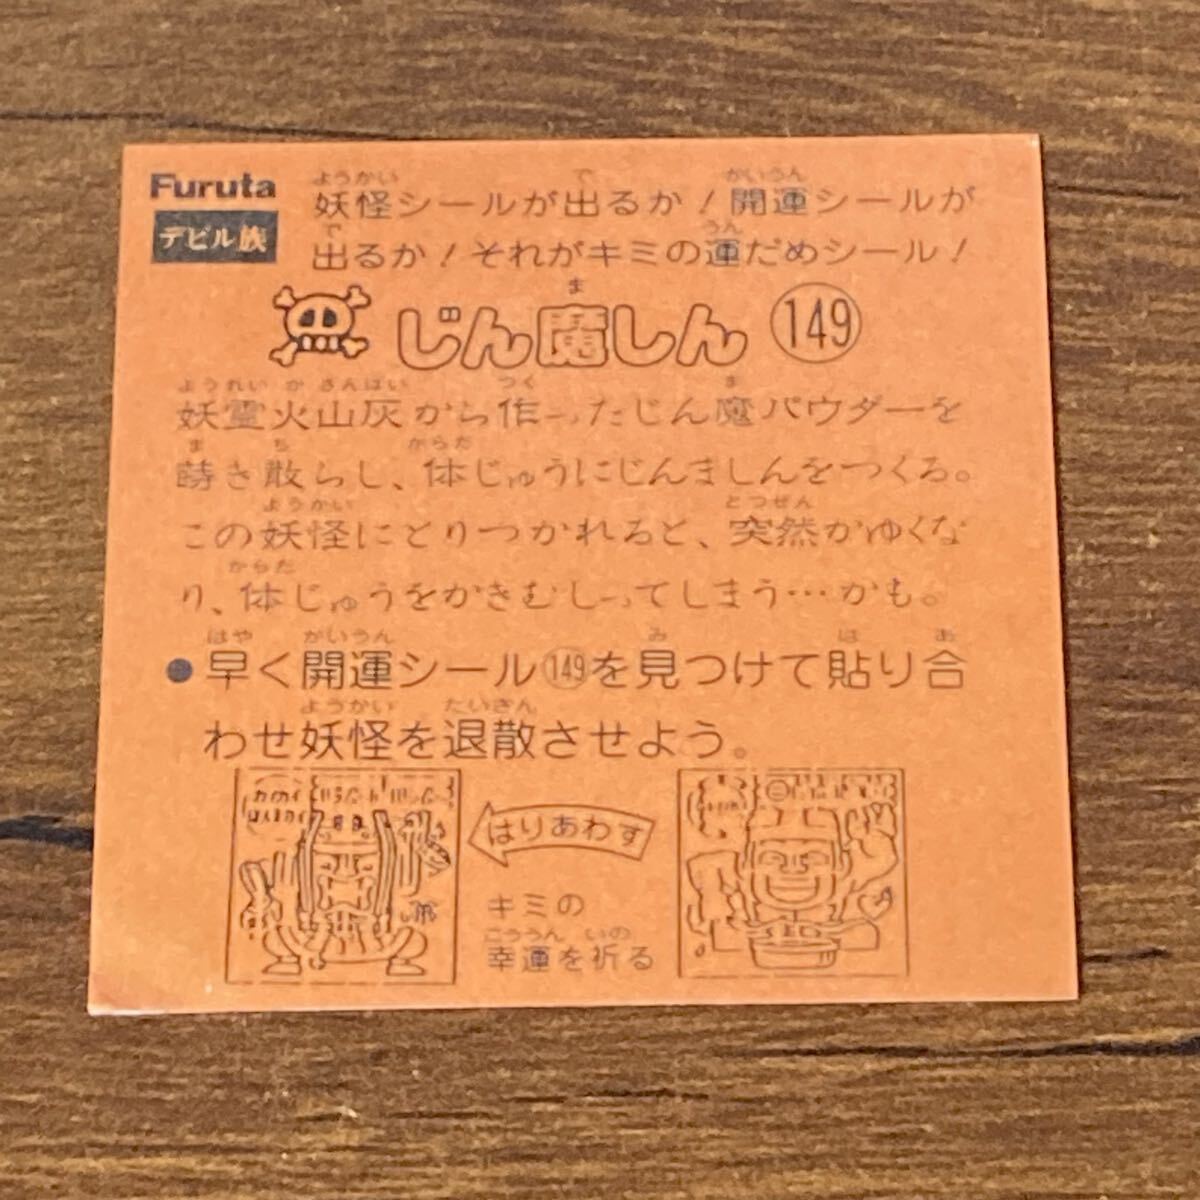 Furuta
デビル族
妖怪シールが出るか！開運シールが
出るか！それがキミの運だめシール！
じん魔しん 149
妖霊火山灰から作ったじん魔パウダーを
蒔き散らし、体じゅうにじんましんをつくる。
この妖怪にとりつかれると、突然かゆくな
り、体じゅうをかきむしってしまう…かも。
●早く開運シール149を見つけて貼り合
わせ妖怪を退散させよう。
はりあわす
キミの
幸運を祈る